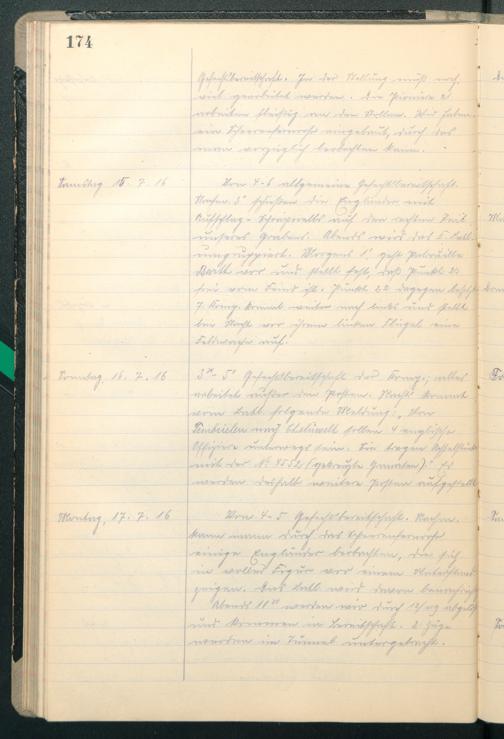 174
Gefechtsbereitschaft. In der Stellung muß noch
viel gearbeitet werden. Die Pioniere
arbeiten fleißig an den Stollen. Wir haben
ein Scherenfernrohr eingebaut, durch das
man vorzüglich beobachten kann.
Samstag 15. 7. 16 Von 4-6 allgemeine Gefechtsbereitschaft.
Nachm. 5° schießen die Engländer mit
Aufschlag- Schrapnells auf den rechten Teil
unseres Grabens. Abends wird das Batl.
umgruppiert. Morgens 1° geht Patrouille
vor und stellt fest, daß Punkt
frei vom Feind ist. Punkt 22 dagegen besetzt
7. Komp. kommt weiter nach links und stellt
bei Nacht vor ihrem linken Flügel eine
Feldwache auf.
Sonntag, 16. 7. 16 Gefechtsbereitschaft der Komp.; alles
arbeitet außer den Posten. Nachts kommt
vom Batl. folgende Meldung: „Von
nach sollen 4 englische
Offiziere unterwegs sein. Sie tragen
mit der No 4552 (gekreuzte Granaten)." Es
werden deshalb weitere Posten aufgestellt
Montag, 17. 7. 16 Von 4-5 Gefechtsbereitschaft. Nachm.
kann man durch das Scherenfernrohr
einige Engländer beobachten, die sich
in voller Figur vor einem Unterstand
zeigen. Das Batl. wird davon benachricht
Abends werden wir durch abgelöst
und kommen in Bereitschaft. 2 Züge
werden im Tunnel untergebracht.